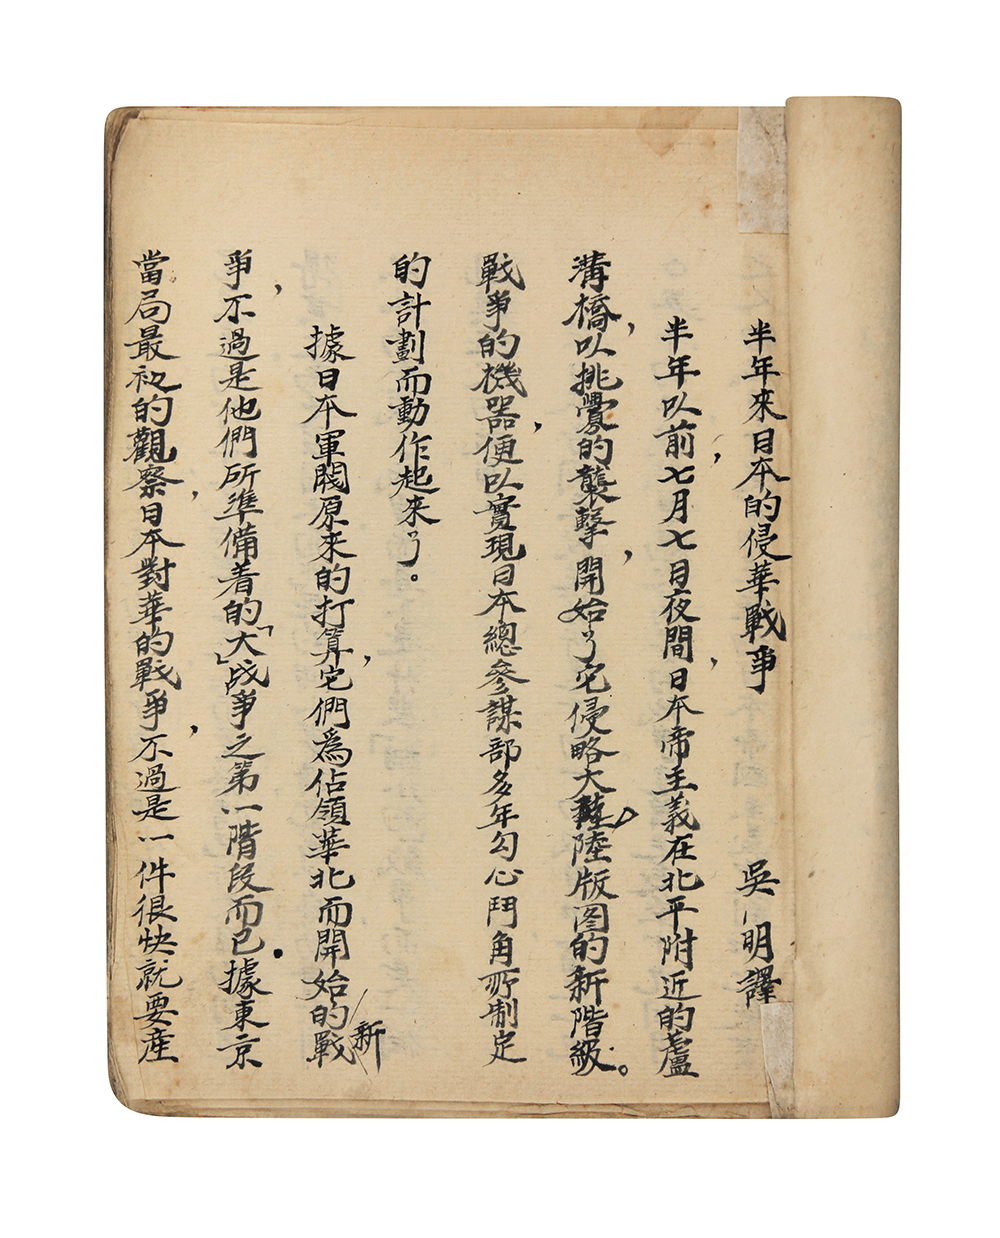 半年來日本的侵華戰爭　吳明譯
半年以前，七月七日夜間，日本帝主義在北平附近的盧
溝橋，以挑釁的襲擊，開始了它侵略大陸版图的新階級。
戰爭的機器，便以實現日本總參謀部多年勾心鬥角所制定
的計劃而動作起来了。
據日本軍閥原来的打算，它們為佔領華北而開始的新戰
爭，不過是他們所準備着的「大」战爭之第一階段而已．據東京
當局最初的觀察，日本對華的戰爭，不過是一件很快就要產